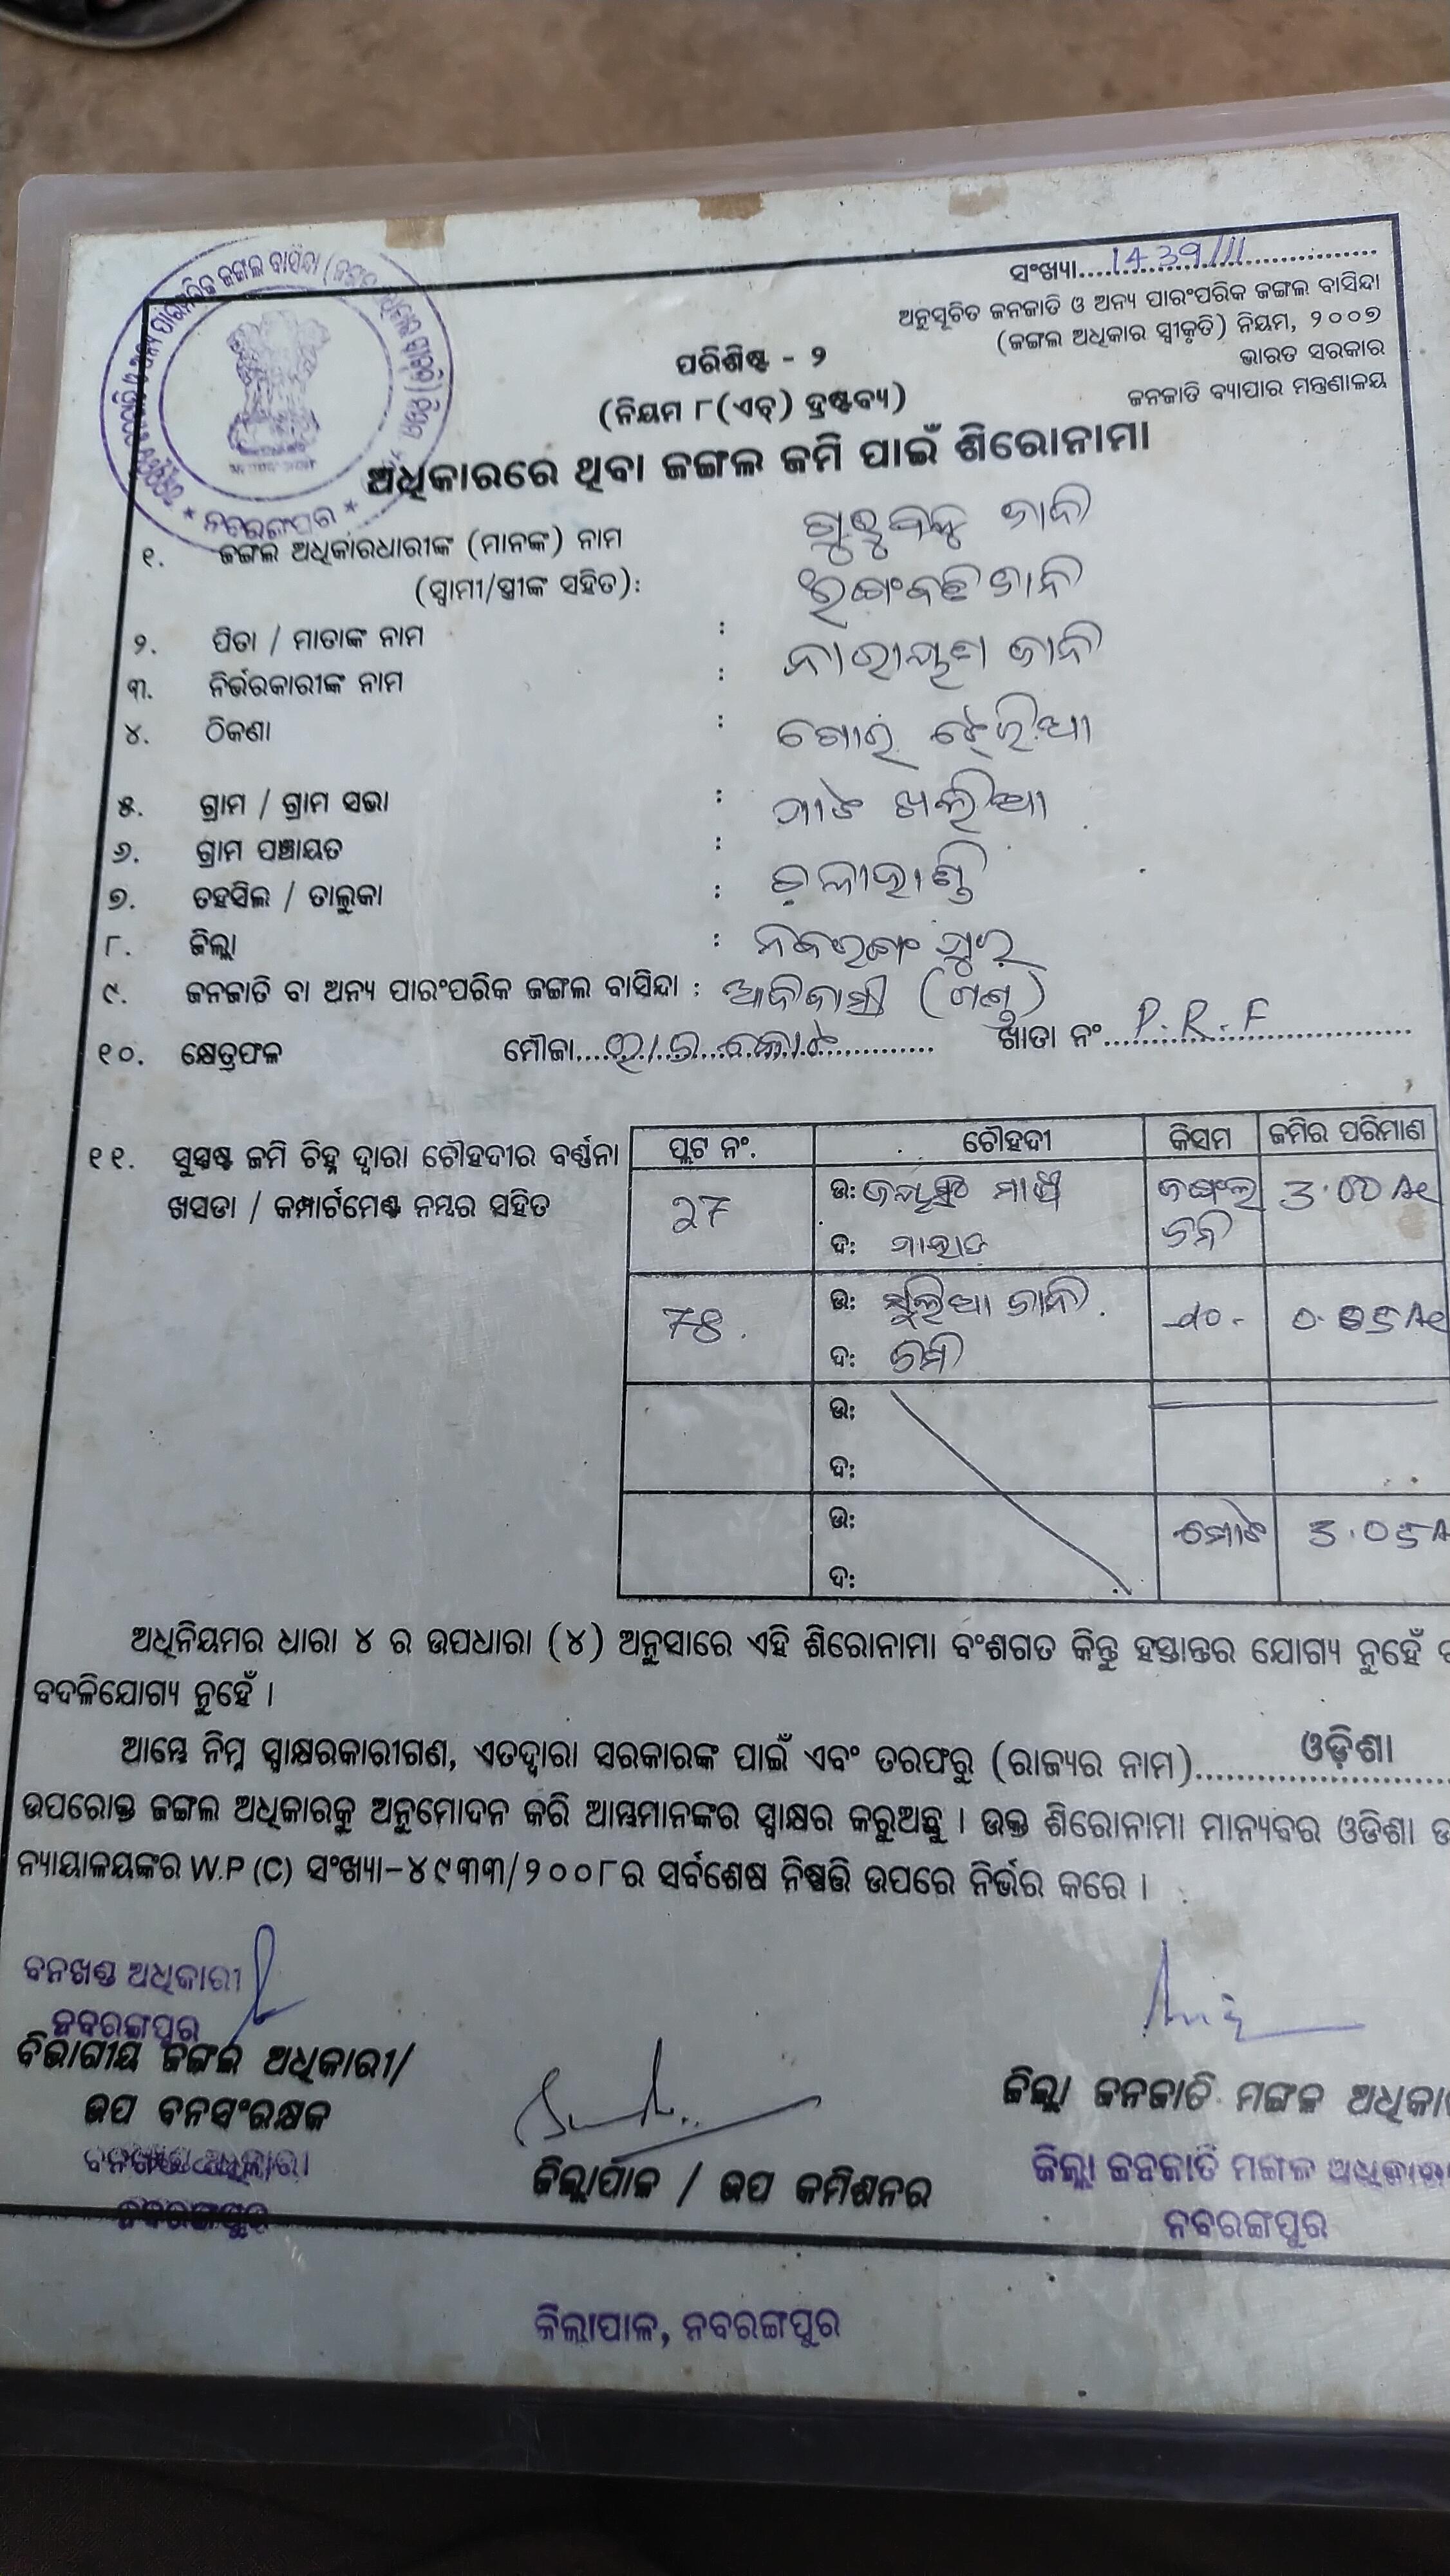 ସଂଖ୍ୟା....1439/11....
ଅନୁସୂଚିତ ଜନଜାତି ଓ ଅନ୍ୟ ପାରଂପରିକ ଜଙ୍ଗଲ ବାସିନ୍ଦା
(ଜଙ୍ଗଲ ଅଧିକାର ସ୍ୱୀକୃତି) ନିୟମ, ୨୦୦୭
ଭାରତ ସରକାର
ଜନଜାତି ବ୍ୟାପାର ମନ୍ତ୍ରଣାଳୟ
ପରିଶିଷ୍ଟ - ୨
(ନିୟମ ୮(ଏଚ୍) ଦ୍ରଷ୍ଟବ୍ୟ)
ଅଧିକାରରେ ଥିବା ଜଙ୍ଗଲ ଜମି ପାଇଁ ଶିରୋନାମା
ନବରଙ୍ଗପୁର
୧. ଜଙ୍ଗଲ ଅଧିକାରଧାରୀଙ୍କ (ମାନଙ୍କ) ନାମ ଜାନି
(ସ୍ୱାମୀ/ସ୍ତ୍ରୀଙ୍କ ସହିତ): ଜାନି
୨. ପିତା / ମାତାଙ୍କ ନାମ : ନାରାୟଣ ଜାନି
୩. ନିର୍ଭରକାରୀଙ୍କ ନାମ :
୪. ଠିକଣା :
୫. ଗ୍ରାମ / ଗ୍ରାମ ସଭା :
୬. ଗ୍ରାମ ପଞ୍ଚାୟତ :
୭. ତହସିଲ / ତାଲୁକା :
୮. ଜିଲ୍ଲା : ନବରଙ୍ଗପୁର
୯. ଜନଜାତି ବା ଅନ୍ୟ ପାରଂପରିକ ଜଙ୍ଗଲ ବାସିନ୍ଦା : ଆଦିବାସୀ (ଗଣ୍ଡ)
୧୦. କ୍ଷେତ୍ରଫଳ ମୌଜା........ ଖାତା ନଂ....P.R.F....
୧୧. ସୁସ୍ପଷ୍ଟ ଜମି ଚିହ୍ନ ଦ୍ୱାରା ଚୌହଦୀର ବର୍ଣ୍ଣନା
ଖସଡା / କମ୍ପାର୍ଟମେଣ୍ଟ ନମ୍ବର ସହିତ
ପ୍ଲଟ ନଂ. ଚୌହଦୀ କିସମ ଜମିର ପରିମାଣ
27 ଉ: ମାଝି ଜଙ୍ଗଲ 3.00 Ac
ଦ: ପାହାଡ ଜମି
78 ଉ: ଜାନି -do- 0.05 Ac
ଦ: ଜମି
ଉ:
ଦ:
ଉ: ମୋଟ 3.05 A
ଦ:
ଅଧିନିୟମର ଧାରା ୪ ର ଉପଧାରା (୪) ଅନୁସାରେ ଏହି ଶିରୋନାମା ବଂଶଗତ କିନ୍ତୁ ହସ୍ତାନ୍ତର ଯୋଗ୍ୟ ନୁହେଁ
ବଦଳିଯୋଗ୍ୟ ନୁହେଁ ।
ଆମ୍ଭେ ନିମ୍ନ ସ୍ୱାକ୍ଷରକାରୀଗଣ, ଏତଦ୍ୱାରା ସରକାରଙ୍କ ପାଇଁ ଏବଂ ତରଫରୁ (ରାଜ୍ୟର ନାମ)....ଓଡ଼ିଶା....
ଉପରୋକ୍ତ ଜଙ୍ଗଲ ଅଧିକାରକୁ ଅନୁମୋଦନ କରି ଆମ୍ଭମାନଙ୍କର ସ୍ୱାକ୍ଷର କରୁଅଛୁ । ଉକ୍ତ ଶିରୋନାମା ମାନ୍ୟବର ଓଡିଶା
ନ୍ୟାୟାଳୟଙ୍କର W.P (C) ସଂଖ୍ୟା-୪୯୩୩/୨୦୦୮ର ସର୍ବଶେଷ ନିଷ୍ପତ୍ତି ଉପରେ ନିର୍ଭର କରେ ।
ବନଖଣ୍ଡ ଅଧିକାରୀ
ନବରଙ୍ଗପୁର
ବିଭାଗୀୟ ଜଙ୍ଗଲ ଅଧିକାରୀ/
ଉପ ବନସଂରକ୍ଷକ
ବନଖଣ୍ଡ ଅଧିକାରୀ
ନବରଙ୍ଗପୁର
ଜିଲ୍ଲାପାଳ / ଉପ କମିଶନର
ଜିଲ୍ଲା ଜନଜାତି ମଙ୍ଗଳ ଅଧିକା
ଜିଲ୍ଲା ଜନଜାତି ମଙ୍ଗଳ ଅଧିକାରୀ
ନବରଙ୍ଗପୁର
ଜିଲାପାଳ, ନବରଙ୍ଗପୁର